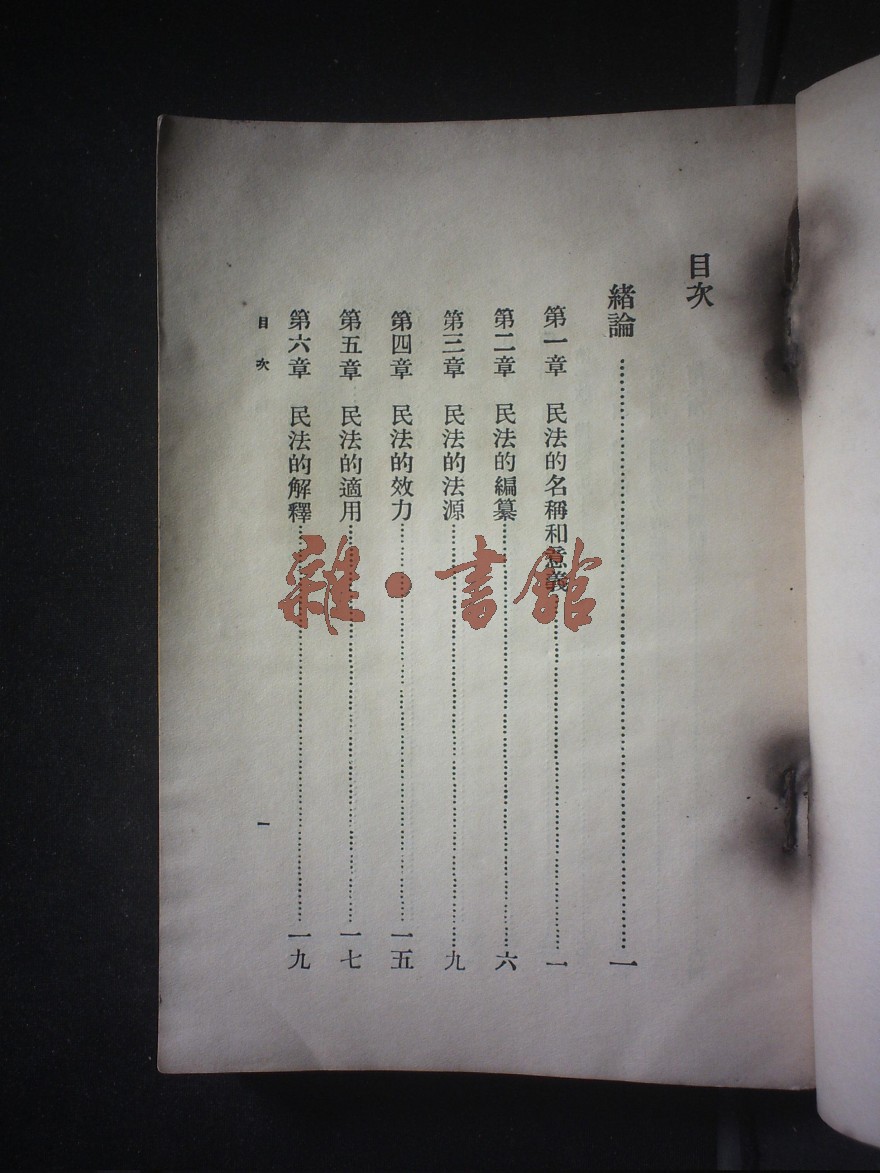 目次
緒論……一
第一章　民法的名稱和意義……一
第二章　民法的編纂……六
第三章　民法的法源……九
第四章　民法的效力……一五
第五章　民法的適用……一七
第六章　民法的解釋……一九
目次　一
雜·書館